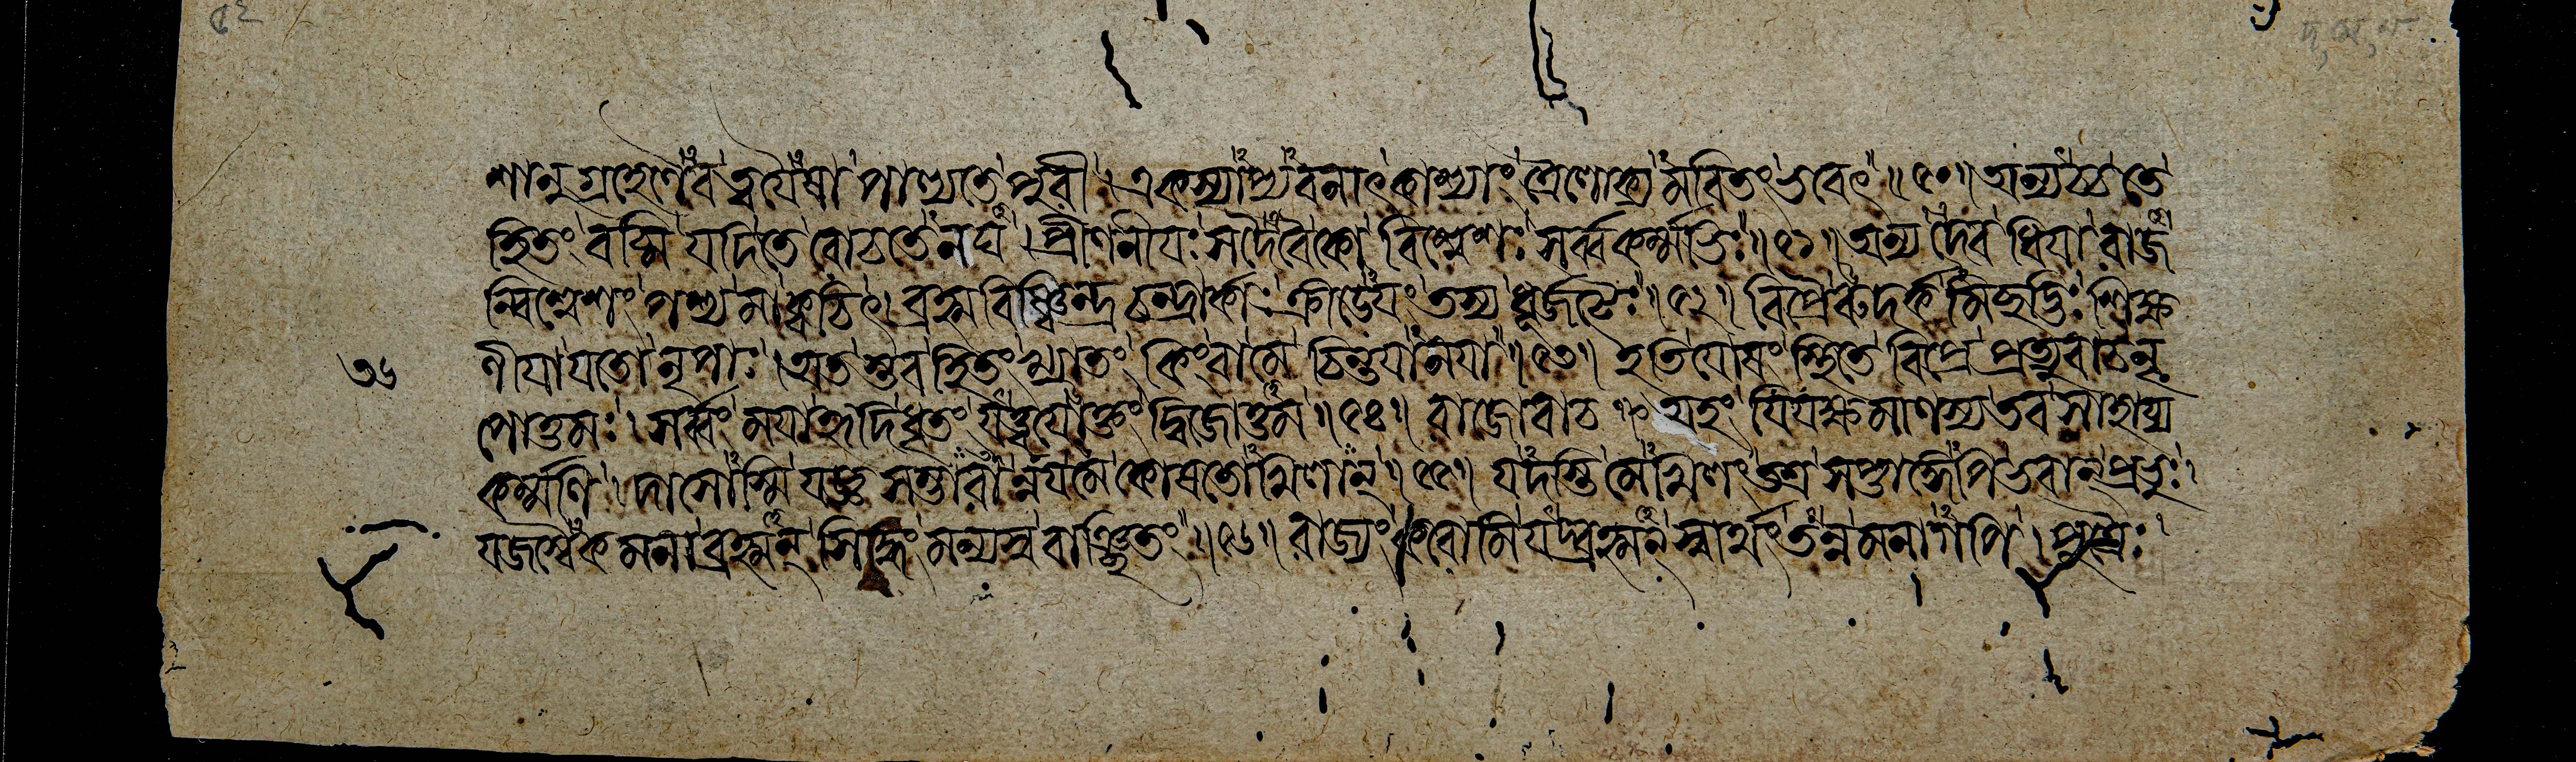 ৫২
শানুগ্রহেণৈব ত্বয়ৈষা পাল্যতে পুরী। একস্যাপ্যবনাৎ কাশ্যাং ত্রৈলোক্যমবিতং ভবেৎ॥৫০॥ অন্যচ্চ তে
হিতং বচ্মি যদি তে রোচতেনঘ। প্রীণনীয়ঃ সদৈবৈকো বিশ্বেশঃ সর্ব্বকর্ম্মভিঃ॥৫১॥ অন্যদৈবধিয়া রাজ
ন্বিশ্বেশং পশ্য মা ক্বচিৎ। ব্রহ্মবিষ্ণ্বিন্দ্রচন্দ্রার্কাঃ ক্রীডেয়ং তস্য ধূর্জটেঃ॥৫২॥ বিপ্রৈরুদর্কমিচ্ছদ্ভিঃ শিক্ষ
৩৬ ণীয়া যতো নৃপাঃ। অতস্তব হিতং খ্যাতং কিং বা মে চিন্তয়ানয়া॥৫৩॥ ইতি যোষং স্থিতে বিপ্রে প্রত্যুবাচ নৃ
পোত্তমঃ। সর্ব্বং ময়া হৃদি ধৃতং যত্ত্বয়োক্তং দ্বিজোত্তম॥৫৪॥ রাজোবাচ॥ অহং যিযক্ষমাণস্য তব সাহায্য
কর্ম্মণি। দাসোস্মি যজ্ঞসম্ভারান্নয় মে কোষতোখিলান্॥৫৫॥ যদস্তি মেখিলং তত্র সপ্তাঙ্গেপি ভবান্প্রভুঃ।
যজস্বৈকমনা ব্রহ্মন্ সিদ্ধং মন্যস্ব বাঞ্ছিতং॥৫৬॥ রাজ্যং করোমি যদ্ব্রহ্মন্ স্বার্থং তন্ন মনাগপি। পুত্রৈঃ